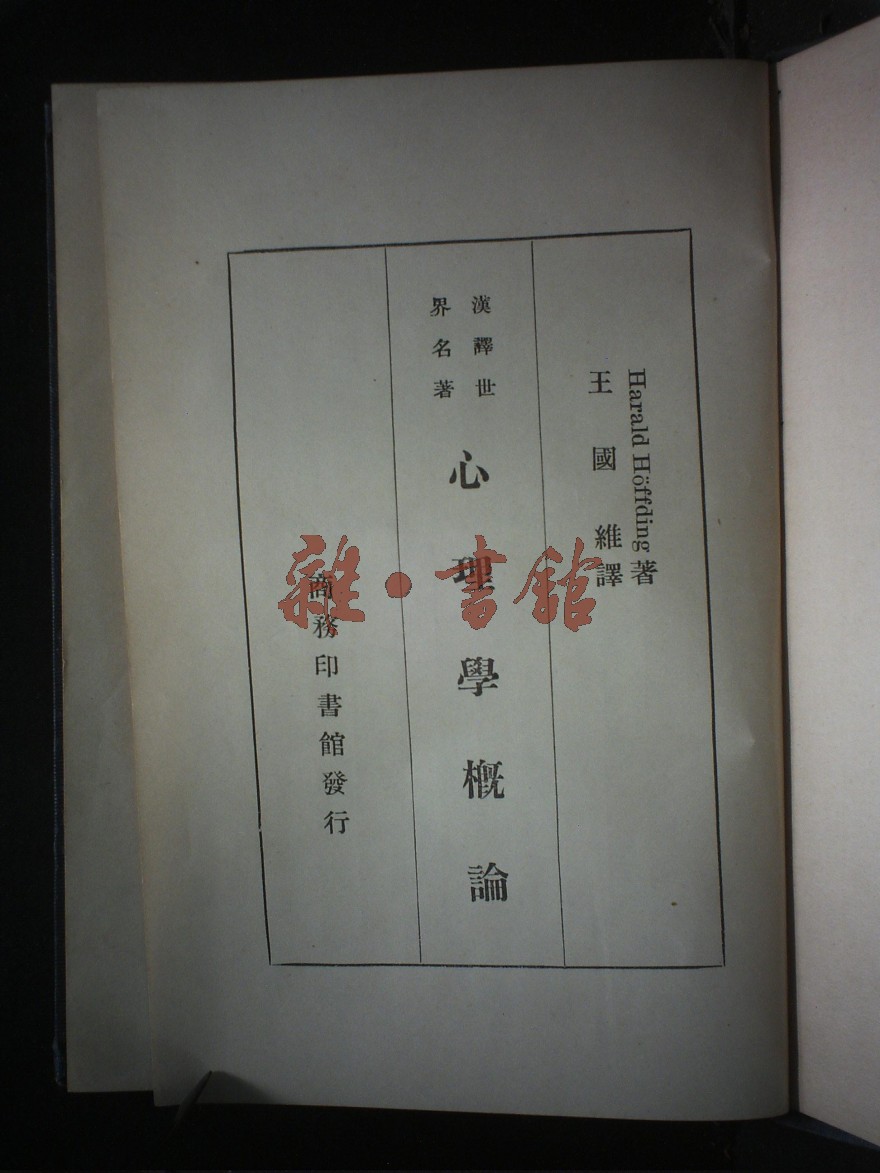 Harald Höffding 著
王國維譯
漢譯世
界名著
心理學概論
商務印書館發行
雜·書館